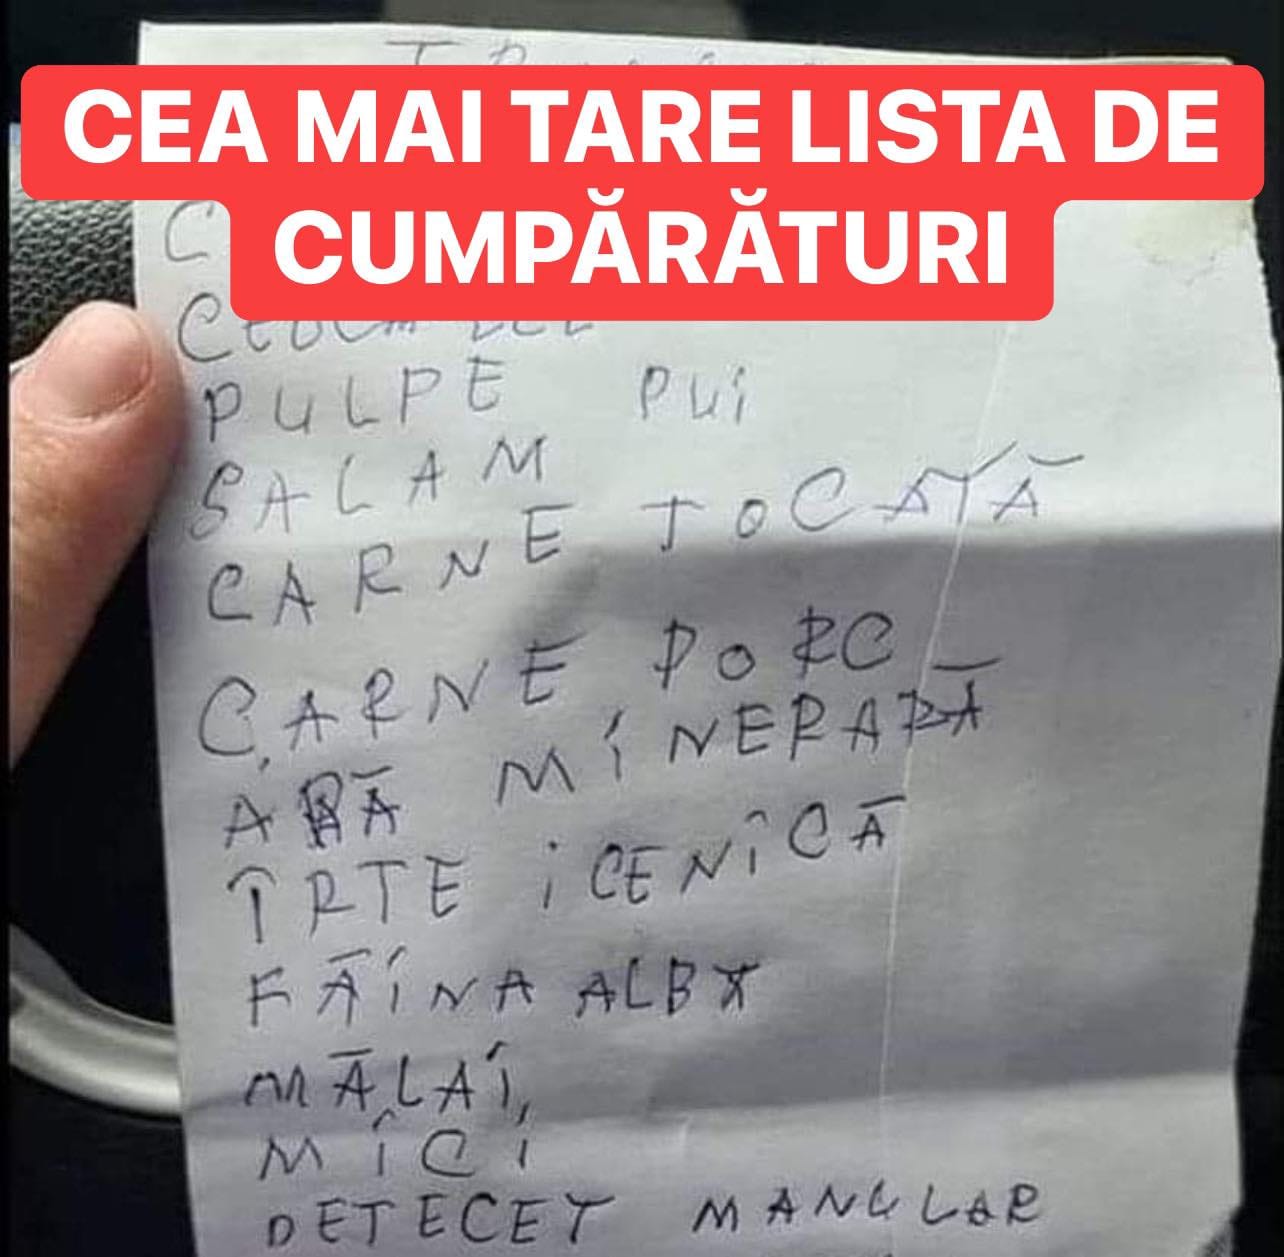 CEA MAI TARE LISTA DE
CUMPĂRĂTURI
PULPE PUI
SALAM
CARNE TOCATĂ
CARNE PORC
MÍNERALĂ
ÎRTE İCENÎCĂ
FĂÍNA ALBA
MĂLAÍ,
MÎCİ
DETECET MANULAR